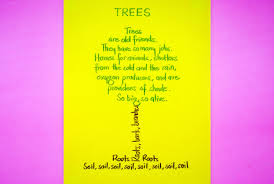 TREES
Trees
are old friends.
They have so many jobs.
Homes for animals, shelters
from the cold and the rain,
oxygen producers, and are
providers of shade.
So big, so alive.
Roots, bark, branches
Roots Roots
Soil, soil, soil, soil, soil, soil, soil